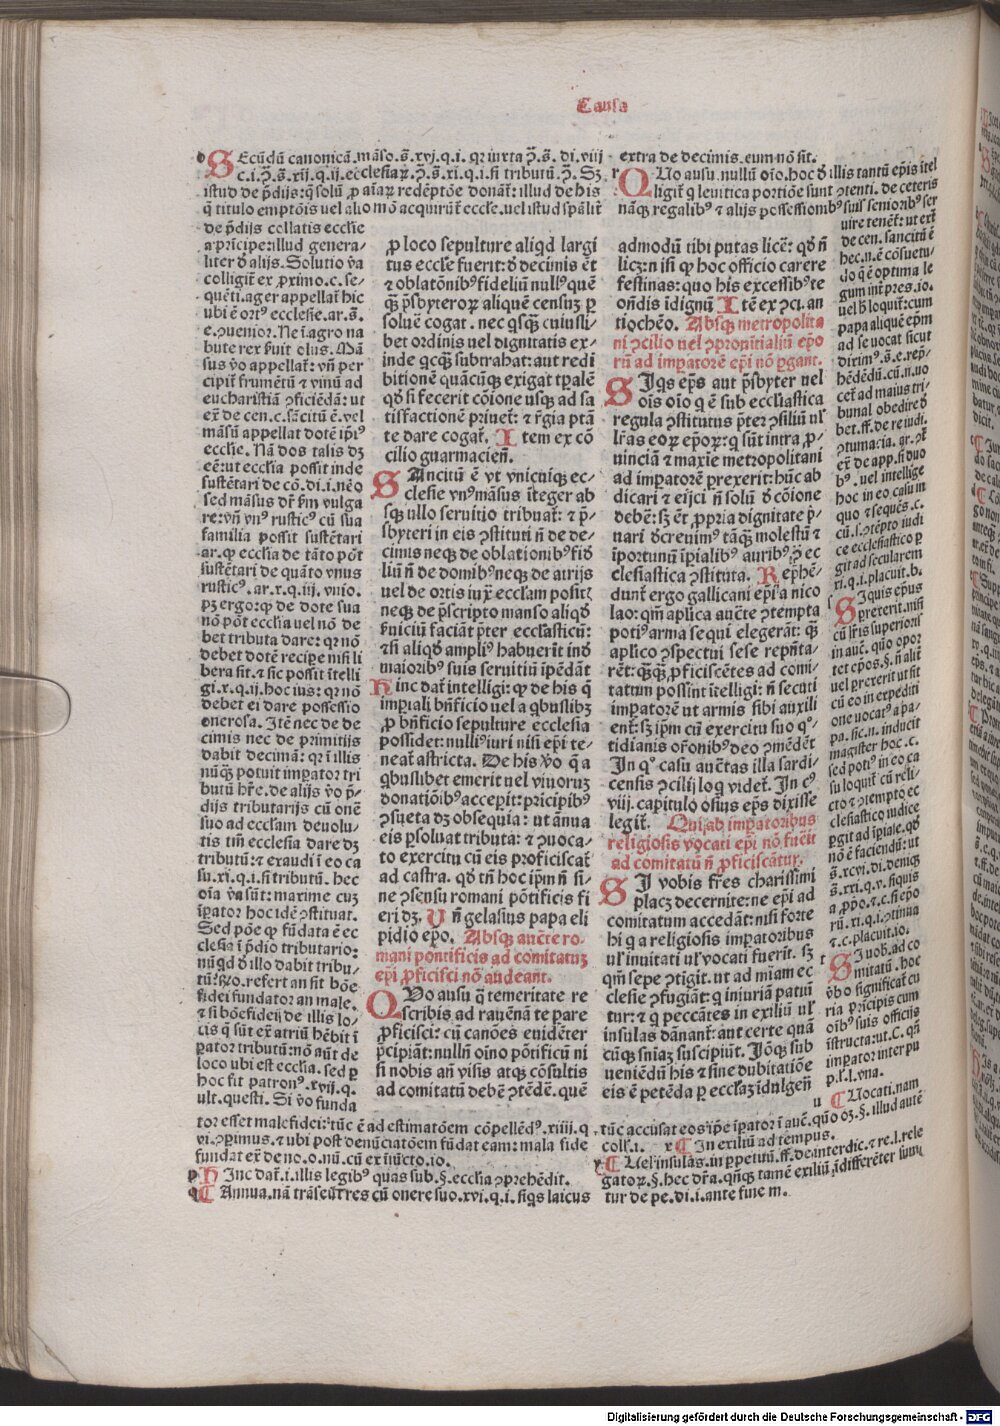 Causa
SEcūdū canonicā.māso.s̄.xvj.q.i. qr iuxta ꝓ.s̄. di.viij
c.i.ꝓ.s̄.xij.q.ij.ecclesiaꝝ.ꝓ.s̄.xi.q.i.si tributū.ꝓ. Sꝫ
de p̄dijs collatis ecclie
a prīcipe:illud genera/
liter ꝺ alijs. Solutio v̄a
colligit̄ ex ꝓximo.c. se/
quēti.ager appellat̄ hic
ubi ē ortꝰ ecclesie.ar.s̄.
e.ꝯuenior. Ne ī.agro na
bute rex ꝓuit olus. Mā
sus v̄o appellat̄: vn̄ per
cipit̄ frumētū ⁊ vinū ad
eucharistiā ꝯficiēdā: ut
ex̄ de cen.c.sācitū ē.vel
māsū appellat dotē ip̄iꝰ
ecclie. Nā dos talis dꝫ
eē:ut ecclia possit inde
sustētari de cō.di.i.nēo
sed māsus dr̄ ẜm vulga
re:vn̄ vnꝰ rusticꝰ cū sua
familia possit sustētari
ar.ꝙ ecclia de tāto pōt
sustētari de quāto vnus
rusticꝰ. ar.x.q.iij. vnio.
pꝫ ergo:ꝙ de dote sua
nō pōt ecclia uel nō de
bet tributa dare: qr nō
debet dotē recipe nisi li
bera sit.⁊ sic possit ītelli
gi.x.q.ij.hoc ius: qr nō
debet ei dare possessio
onerosa. Itē nec de de
cimis nec de primitijs
dabit decimā: qr ī illis
nūqꝫ potuit imꝑator tri
butū hr̄e.de alijs v̄o p̄
dijs tributarijs cū onē
suo ad eccłam deuolu/
tis tn̄ ecclesia dare dꝫ
tributū:⁊ exaudi ī eo ca
su.xi.q.i.si tributū. hec
oīa v̄a sūt: maxime cuꝫ
īꝑator hoc idē ꝯstituat.
Sed pōe ꝙ fūdata ē ec
clesia ī p̄dio tributario:
nūqd ꝺ illo dabit tribu/
tū: refert an sit bōe
fidei fundator an male.
⁊ si bōefideij de illis lo/
cis q̄ sūt ex̄ atriū hēbit ī
ꝑator tributū:nō aūt de
loco ubi est ecclia.sed ꝑ
hoc fit patronꝰ.xvij.q.
ult.questi. Si v̄o funda
tor esset male fidei: tūc ē ad estimatōem cōpellēdꝰ.xiiij.q
vi.ꝯperimus.⁊ ubi post denūciatōem fūdat eam: mala fide
fundat ex̄ de no.o.nū.cū ex iniūcto.io.
p Hinc dat̄.i.illis legibꝰ quas sub.§.ecclia ꝯprehēdit.
q ¶ Annua.nā trāseūtres cū onere suo.xvi.q.i.siqs laicus
ꝓ loco sepulture aliqd largi
tus eccle fuerit:ꝺ decimis ēt
⁊ oblatōnibꝰ fideliū nullꝰ quē
qꝫ p̄sbyteroꝝ aliquē censuꝫ ꝑ
soluē cogat. nec qsqꝫ cuiusli/
bet ordinis uel dignitatis ex/
inde qcqꝫ subtrahat: aut redi
bitionē quācūqꝫ exigat tꝑalē
qꝺ si fecerit cōione usqꝫ ad sa
tissactionē priuet̄: ⁊ r̄gia ptā
te dare cogat̄. Item ex cō
cilio guarmacien̄.
SAncitū ē vt vnicuiqꝫ ec/
clesie vnꝰmāsus īteger ab
sqꝫ ullo seruitio tribuat̄: ⁊ p̄/
sbyteri in eis ꝯstituti n̄ de de/
cimis neqꝫ de oblationibꝰ fiꝺ
liū n̄ de domibꝰneqꝫ de atrijs
uel de ortis iuꝉ eccłam positꝭ
neqꝫ de p̄scripto manso aliqꝺ
ẜuiciū faciāt p̄ter eccłasticū:
⁊ si aliqꝺ ampliꝰ habuerīt inꝺ
maioribꝰ suis seruitiū īpēdāt
Hinc dat̄ intelligi: ꝙ de his q̄
imꝑiali bn̄ficio uel a qbuslibꝫ
ꝓ bn̄ficio sepulture ecclesia
possidet:nulliꝰ iuri nisi epi te/
neat̄ astricta. De his v̄o q̄ a
qbuslibet emerit uel viuoruꝫ
donatiōibꝰacceꝑit:prīcipibꝰ
ꝯsueta dꝫ obsequia: ut ānua
eis ꝑsoluat tributa: ⁊ ꝯuoca/
to exercitu cū eis ꝓficiscat̄
ad castra. qꝺ tn̄ hoc ip̄m n̄ si/
ne ꝯsensu romani pōtificis fi
eri dꝫ. Vn̄ gelasius papa eli
pidio epo. Absqꝫ aucte ro/
mani pontificis ad comitatuꝫ
epi ꝓficisci nō audeant.
QVo ausu q̄ temeritate re
scribis ad rauēnā te pare
ꝓficisci: cū canōes euidēter
p̄cipiāt: nullū oīno pōtificū ni
si nobis an̄ visis atqꝫ cōsultis
ad comitatū debē ꝯtēdē. quē
extra de decimis.eum nō sit.
QVo ausu. nullū oīo.hoc ꝺ illis tantū epis ītel
ligit̄ q̄ leuitica portiōe sunt ꝯtenti. de ceteris
nāqꝫ regalibꝰ ⁊ alijs possessionibꝰ suis senioribꝰ ser
admodū tibi putas licē: qꝺ n̄
licꝫ:n isi ꝙ hoc officio carere
festinas: quo his excessibꝰte
on̄dis īdignū Itē ex ꝯci. an
tiochēo. Absqꝫ metropolita
ni ꝯcilio uel ꝯprouītialiū epo
rū ad imꝑatorē epi nō ꝑgant.
SIqs eps aut p̄sbyter uel
ois oīo q̄ ē sub eccłiastica
regula ꝯstitutus p̄ter ꝯsiliū uꝉ
lr̄as eoꝝ epoꝝ: q̄ sūt intra ꝓ/
uinciā ⁊ maxīe metropolitani
ad imꝑatorē prexerit: hūc ab
dicari ⁊ eijci n̄ solū ꝺ cōione
debē: sꝫ ēt ꝓpria dignitate p̄/
nari ꝺcreuimꝰ tāqꝫ molestū ⁊
īportunū īꝑialibꝰ auribꝰ ꝯ̄ ec
clesiastica ꝯstituta. Rep̄hē/
dunt̄ ergo gallicani epi a nico
lao: qm̄ aplica aucte ꝯtempta
potiꝰ arma sequi elegerāt: qꝫ
aplico ꝯspectui sese repn̄ta/
rēt: qꝫqꝫ ꝓficiscētes ad comi/
tatum possint ītelligi: n̄ secuti
imꝑatorē ut armis sibi auxili
ent̄: sꝫ ip̄m cū exercitu suo qꝰ/
tidianis or̄onibꝰ deo ꝯmēdēt
In qꝰ casu auctas illa sardi/
censis ꝯcilij loq videt̄. In cꝰ
viij. capitulo osius eps dixisse
legit̄. Qui ab imꝑatoribus
religiosis vocati epi nō fuerīt
ad comitatū n̄ ꝓficiscātur.
SI vobis fr̄es charissimi
placꝫ decernite: ne epi ad
comitatum accedāt: nisi forte
hi q a religiosis imꝑatoribus
uꝉ inuitati uꝉ vocati fuerīt. sꝫ
qm̄ sepe ꝯtigit. ut ad miam ec
clesie ꝯfugiāt: q iniuriā patiū
tur: ⁊ q peccātes in exiliū uꝉ
insulas dānant̄: aut certe quā
cūqꝫ sniaꝫ suscipiūt. Iō̄qꝫ sub
ueniēdū his ⁊ sine dubitatiōe
eis ē petēda ꝑ eccłaꝫ īdulgen̄
uire tenēt̄:ut ext̄
de cen. sancitū ē
hec.n.ē cōsuetu/
do q̄ ē optima le
gum int̄ pres.io.
uel ꝺ loquit̄:cum
papa aliquē epm
ad se uocat sicut
dirimꝰ.s̄.e.rep̄/
hēdēdū.cū.n.uo
cet ad maius tri/
bunal obedire ꝺ
bet.ff.de re iudi.
ꝯtumacia.gr.ꝯt̄
ex̄ de app.si duo
bꝰ.uel intellige
hoc in eo casu in
quo ⁊ seqūēs.c.
cū.s.ꝯtēpto iudi
ce ecclesiastico ꝑ
git ad secularem
xi.q.i.placuit.b.
SI quis epus
ꝑrexerit.nisi
cū lr̄is superiori
in auc̄. quō opor
tet epos.§.n̄ alit̄
uel ꝑrexerit ut sit
cū eo in expediti
one uocatꝰ a pa/
pa.sic.n.inducit
magister hoc.c.
sed potiꝰ in eo ca
su loquit̄ cū reli/
cto ⁊ ꝯtempto ec
clesiastico iudice
ꝑgit ad īꝑiale.qꝺ
nō ē faciendū: ut
s̄.xcvi.di.deniqꝫ
s̄.xxi.q.v.siquis
a ꝓpō.⁊.c.si epo
rū.xi.q.i.ꝯtinua
⁊.c.placuit.io.
SI uob.ad co
mitatū.hoc
v̄bo significat̄ cu
ria prīcipis cum
oibꝰ suis officiis
īstructa:ut.C.qn̄
imꝑator inter pu
p.l.l.vna.
u ¶ Uocati.nam
tūc accusat eos ip̄e īꝑator ī auc̄.quō oꝫ.§.illud autē
coll.i. x ¶ In exiliū ad tempus.
y ¶ Uel insulas.in ꝑpetuū.ff.de interdic.⁊ re.l.rele
gatoꝝ.§.hec dr̄a.qn̄qꝫ tamē exiliū īdifferēter sumi
tur de pe.di.i.ante fine m.